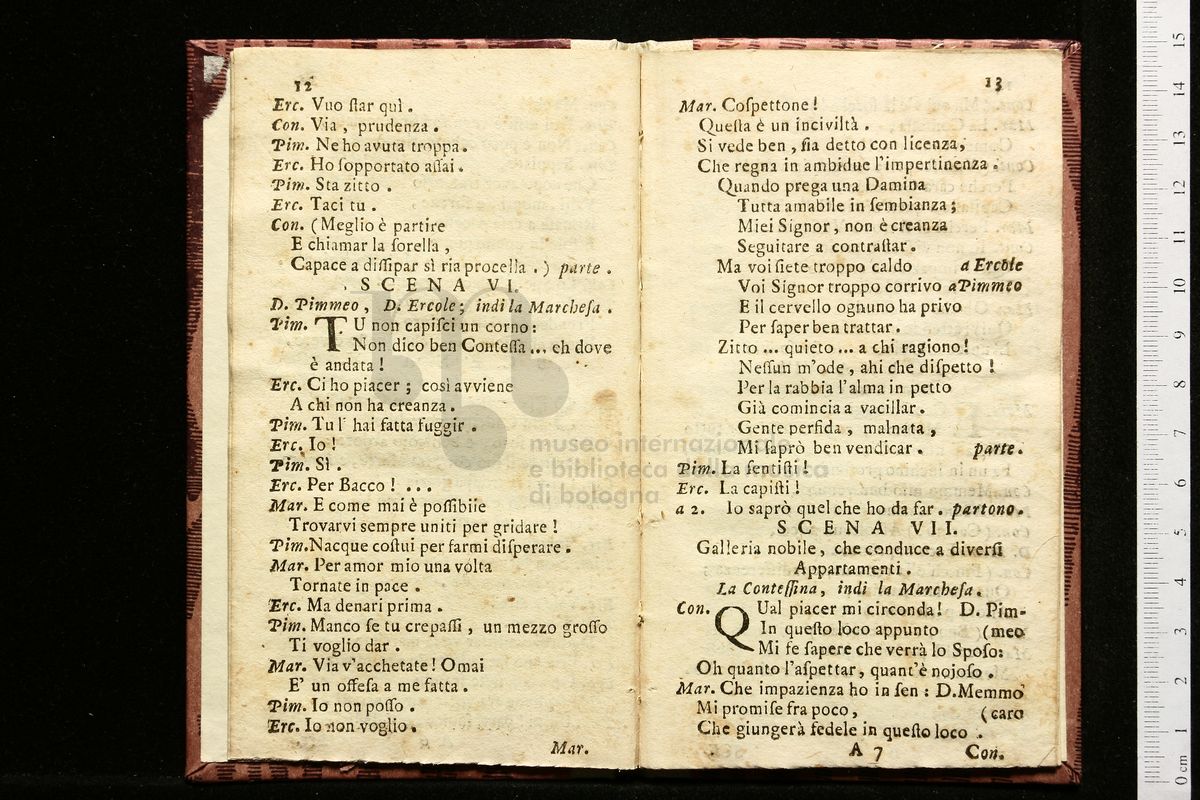 12
Erc. Vuo ſtar quì .
Con. Via , prudenza .
Pim. Ne ho avuta troppa .
Erc. Ho ſopportato aſſai .
Pim. Sta zitto .
Erc. Taci tu .
Con. ( Meglio è partire
E chiamar la ſorella ,
Capace a diſſipar sì ria procella . ) parte .
SCENA VI.
D. Pimmeo , D. Ercole ; indi la Marcheſa .
Pim. TU non capiſci un corno :
Non dico ben Conteſſa ... eh dove
è andata !
Erc. Ci ho piacer ; così avviene
A chi non ha creanza .
Pim. Tu l' hai fatta fuggir .
Erc. Io !
Pim. Sì .
Erc. Per Bacco ! ...
Mar. E come mai è poſſibile
Trovarvi sempre uniti per gridare !
Pim. Nacque coſtui per farmi diſperare .
Mar. Per amor mio una volta
Tornate in pace .
Erc. Ma denari prima .
Pim. Manco ſe tu crepaſſi , un mezzo groſſo
Ti voglio dar .
Mar. Via v'acchetate ! Omai
E' un offeſa a me fatta .
Pim. Io non poſſo .
Erc. Io non voglio .
Mar.
13
Mar. Coſpettone !
Queſta è un inciviltà .
Si vede ben , ſia detto con licenza ,
Che regna in ambidue l'impertinenza .
Quando prega una Damina
Tutta amabile in ſembianza ;
Miei Signor , non è creanza
Seguitare a contraſtar .
Ma voi ſiete troppo caldo a Ercole
Voi Signor troppo corrivo a Pimmeo
E il cervello ognuno ha privo
Per ſaper ben trattar .
Zitto ... quieto ... a chi ragiono !
Neſſun m'ode , ahi che diſpetto !
Per la rabbia l'alma in petto
Già comincia a vacillar .
Gente perfida , malnata ,
Mi ſaprò ben vendicar . parte .
Pim. La ſentiſti !
Erc. La capiſti !
a 2. Io saprò quel che ho da far . partono .
SCENA VII.
Galleria nobile , che conduce a diverſi
Appartamenti .
La Conteſſina , indi la Marcheſa .
Con. QUal piacer mi circonda ! D. Pim-
In queſto loco appunto (meo
Mi fe ſapere che verrà lo Spoſo :
Oh quanto l'aſpettar , quant'è nojoſo .
Mar. Che impazienza ho in ſen : D. Memmo
Mi promiſe fra poco , (caro
Che giungerà fedele in queſto loco .
A 7 Con.
museo internazionale
e biblioteca della musica
di bologna
0 cm 1 2 3 4 5 6 7 8 9 10 11 12 13 14 15